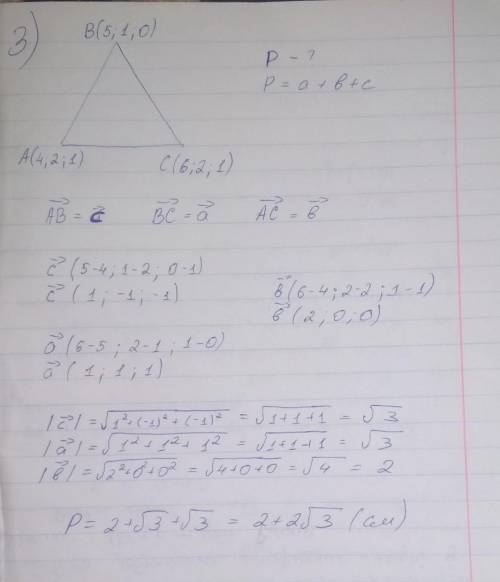 3)
B(5;1;0)
P - ?
P = a + b + c
A(4,2;1)
C(6;2;1)
AB⃗ = c⃗ BC⃗ = a⃗ AC⃗ = b⃗
c⃗ (5-4; 1-2; 0-1)
c⃗ (1; -1; -1)
b⃗ (6-4; 2-2; 1-1)
b⃗ (2; 0; 0)
a⃗ (6-5; 2-1; 1-0)
a⃗ (1; 1; 1)
|c⃗| = √(1²+(-1)²+(-1)²) = √(1+1+1) = √3
|a⃗| = √(1²+1²+1²) = √(1+1+1) = √3
|b⃗| = √(2²+0²+0²) = √(4+0+0) = √4 = 2
P = 2+√3+√3 = 2+2√3 (см)